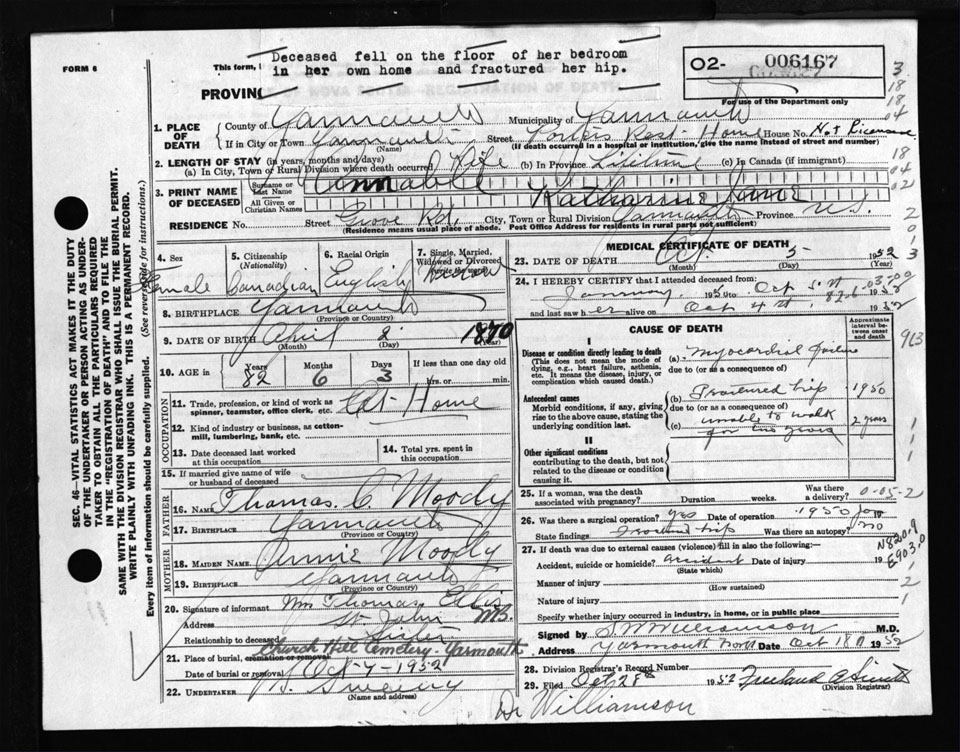 Deceased fell on the floor of her bedroom
in her own home and fractured her hip.
FORM 6
This form,
O2- 006167
For use of the Department only
PROVINC
1. PLACE OF DEATH
County of Yarmouth Municipality of Yarmouth
If in City or Town Yarmouth Street Rest Home House No. Not
(Name) (If death occurred in a hospital or institution, give the name instead of street and number)
2. LENGTH OF STAY (in years, months and days)
(a) In City, Town or Rural Division where death occurred Life (b) In Province Lifetime (c) In Canada (if immigrant)
3. PRINT NAME OF DECEASED
Surname or Last Name Annable
All Given or Christian Names Katharine Jane
RESIDENCE No. Street Grove Rd. City, Town or Rural Division Yarmouth Province N.S.
(Residence means usual place of abode. Post Office Address for residents in rural parts not sufficient)
4. Sex Female
5. Citizenship (Nationality) Canadian
6. Racial Origin English
7. Single, Married, Widowed or Divorced (write the word) Widow
8. BIRTHPLACE Yarmouth
(Province or Country)
9. DATE OF BIRTH April 2 1870
(Month) (Day) (Year)
10. AGE in Years 82 Months 6 Days 3 If less than one day old hrs. or min.
OCCUPATION
11. Trade, profession, or kind of work as spinner, teamster, office clerk, etc. At Home
12. Kind of industry or business, as cotton-mill, lumbering, bank, etc.
13. Date deceased last worked at this occupation
14. Total yrs. spent in this occupation
15. If married give name of wife or husband of deceased
FATHER
16. NAME Thomas C Moody
17. BIRTHPLACE Yarmouth
(Province or Country)
MOTHER
18. MAIDEN NAME Annie Moody
19. BIRTHPLACE Yarmouth
(Province or Country)
20. Signature of informant Mrs Thomas Ellis
Address St John N.B.
Relationship to deceased Sister
21. Place of burial, cremation or removal Church Hill Cemetery - Yarmouth
Date of burial or removal Oct 7 - 1952
22. UNDERTAKER Sweeny
(Name and address)
MEDICAL CERTIFICATE OF DEATH
23. DATE OF DEATH Oct. 5 1952
(Month) (Day) (Year)
24. I HEREBY CERTIFY that I attended deceased from:
January
and last saw her alive on Oct 4 th 1952
CAUSE OF DEATH
Approximate interval between onset and death
I
Disease or condition directly leading to death
(This does not mean the mode of dying, e.g., heart failure, asthenia, etc. It means the disease, injury, or complication which caused death.)
(a) Myocardial failure
due to (or as a consequence of)
Antecedent causes
Morbid conditions, if any, giving rise to the above cause, stating the underlying condition last.
(b) Fractured hip 1950
due to (or as a consequence of)
(c) unable to walk 2 years
for two years
II
Other significant conditions
contributing to the death, but not related to the disease or condition causing it.
25. If a woman, was the death associated with pregnancy? Duration weeks. Was there a delivery? 0-05-2
26. Was there a surgical operation? yes Date of operation 1950
State findings Fractured hip Was there an autopsy? no
27. If death was due to external causes (violence) fill in also the following:—
Accident, suicide or homicide? accident Date of injury 19
(State which)
Manner of injury
(How sustained)
Nature of injury
Specify whether injury occurred in industry, in home, or in public place
Signed by S W Williamson M.D.
Address Yarmouth North Date Oct 18 th 1952
28. Division Registrar's Record Number
29. Filed Oct 28th 1952
(Division Registrar)
Dr Williamson
SEC. 46—VITAL STATISTICS ACT MAKES IT THE DUTY
OF THE UNDERTAKER OR PERSON ACTING AS UNDER-
TAKER TO OBTAIN ALL THE PARTICULARS REQUIRED
IN THE "REGISTRATION OF DEATH" AND TO FILE THE
SAME WITH THE DIVISION REGISTRAR WHO SHALL ISSUE THE BURIAL PERMIT.
WRITE PLAINLY WITH UNFADING INK. THIS IS A PERMANENT RECORD.
Every item of information should be carefully supplied. (See reverse side for instructions.)